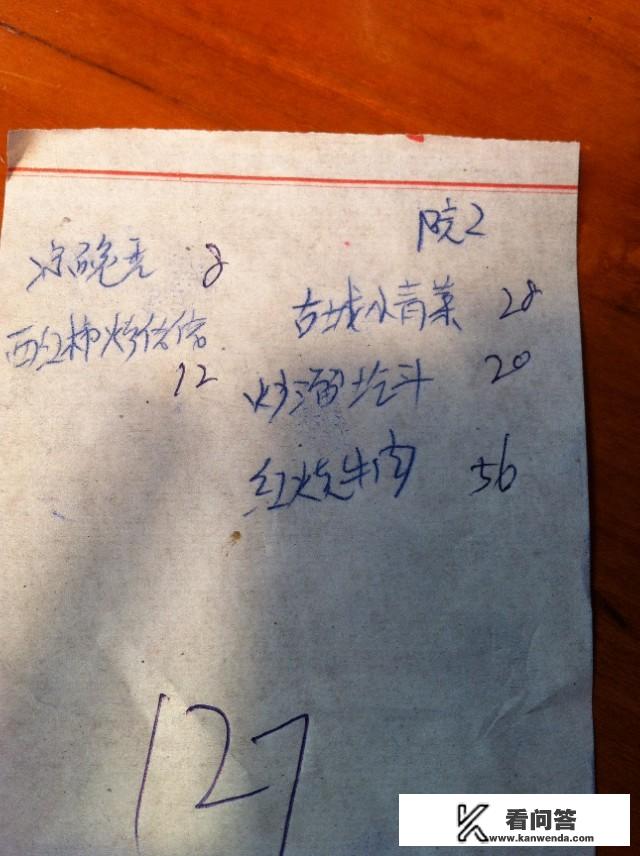 院2
凉豌豆 8
西红柿炒
12
古城水青菜 28
炒溜 20
红烧牛肉 56
127
看问答
www.kanwenda.com